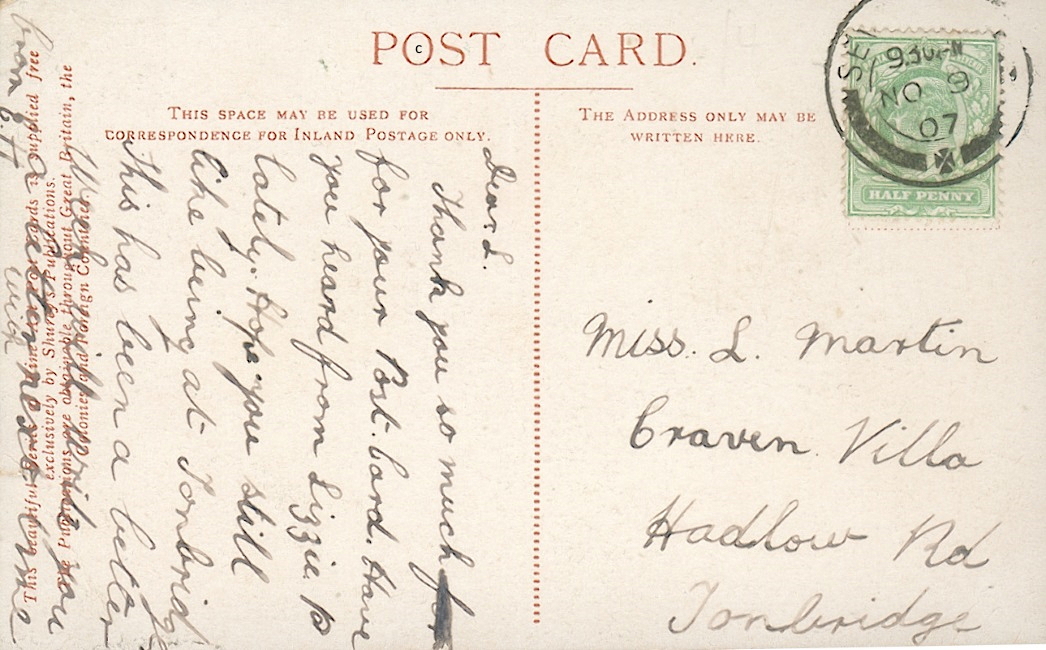 POST CARD.
c
THIS SPACE MAY BE USED FOR
CORRESPONDENCE FOR INLAND POSTAGE ONLY.
THE ADDRESS ONLY MAY BE
WRITTEN HERE.
9.30
NO 9
07
HALF PENNY
Miss. L. Martin
Craven Villa
Hadlow Rd
Tonbridge
Dear L.
Thank you so much for
for your Post. Card. Have
you heard from Lizzie
lately. Hope you still
like being at Tonbridge
This has been a better
will write you
a letter next time
with
from
This beautiful Series of Fine Art Post Cards is supplied free
exclusively by Shurey's Publications.
The Publications are obtainable throughout Great Britain, the
Colonies and Foreign Countries.